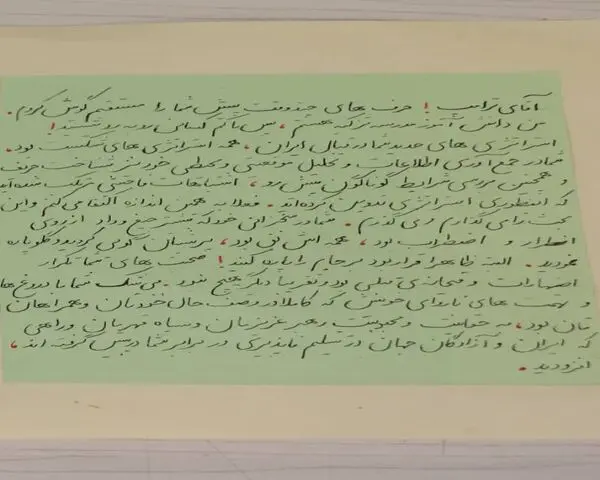 آقای ترامپ! حرف های چند وقت پیش شما را مستقیم گوش کردم.
من دانش آموز مدرسه ترکه هستم، پس با کم کسانی روبه رو نیستید!
استراتژی های جدید شما در قبال ایران، همه استراتژی های شکست بود.
شما در جمع آوری اطلاعات و تحلیل موقعیتی و محیطی خود نیز شناخت حریف
و همچنین بررسی شرایط گوناگون پیش رو، اشتباهات فاحشی مرتکب شده اید
که اینطوری استراتژی تدوین کرده اند. فعلا به همین اندازه اکتفا می کنم و این
بحث را می گذارم و می گذرم. شما در سخنرانی خود که بیشتر جیغ و داد از روی
اضطرار و اضطراب بود، همه اش نق بود، پریشان گویی کردید و گلو پاره
نمودید. البته ظاهرا قرار بود برجام را پاره کنید! صحبت های شما تکرار
اظهارات و فحاشی قبلی بود و تقریبا دیگر هیچ نبود. بی شک شما با دروغ ها
و تهمت های ناروای خویش که کاملا در وصف حال خودتان و همراهان
تان بود، به حقانیت و محبوبیت رهبر عزیزمان و سپاه قهرمان و راهی
که ایران و آزادگان جهان در تسلیم ناپذیری در برابر شما در پیش گرفته اند،
افزودید.